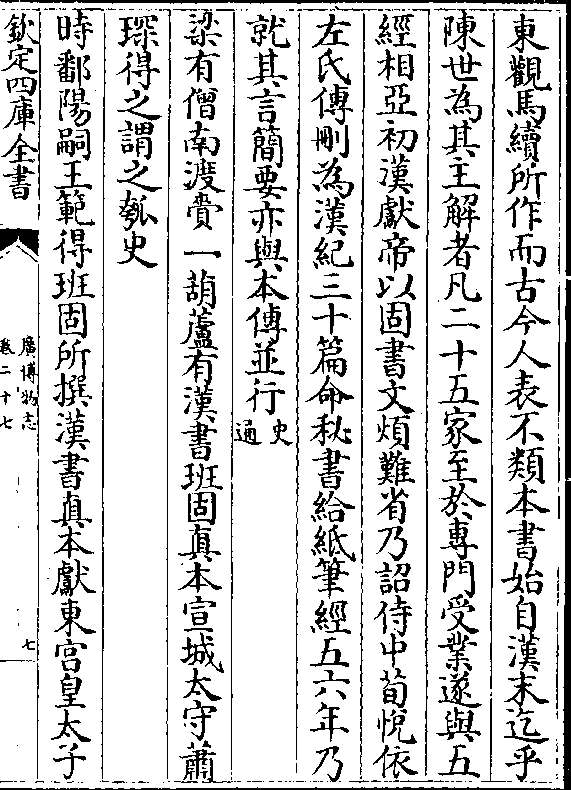 東觀馬續所作而古今人表不類本書始自漢末迄乎
陳世為其主解者凡二十五家至於專門受業遂與五
經相亞初漢獻帝以固書文煩難省乃詔侍中荀悅依
左氏傳刪為漢紀三十篇命秘書給紙筆經五六年乃
就其言簡要亦與本傳並行史通
梁有僧南渡賫一葫蘆有漢書班固真本宣城太守蕭
琛得之謂之瓠史
時鄱陽嗣王範得班固所撰漢書真本獻東宮皇太子
欽定四庫全書
廣博物志
卷二十七
七